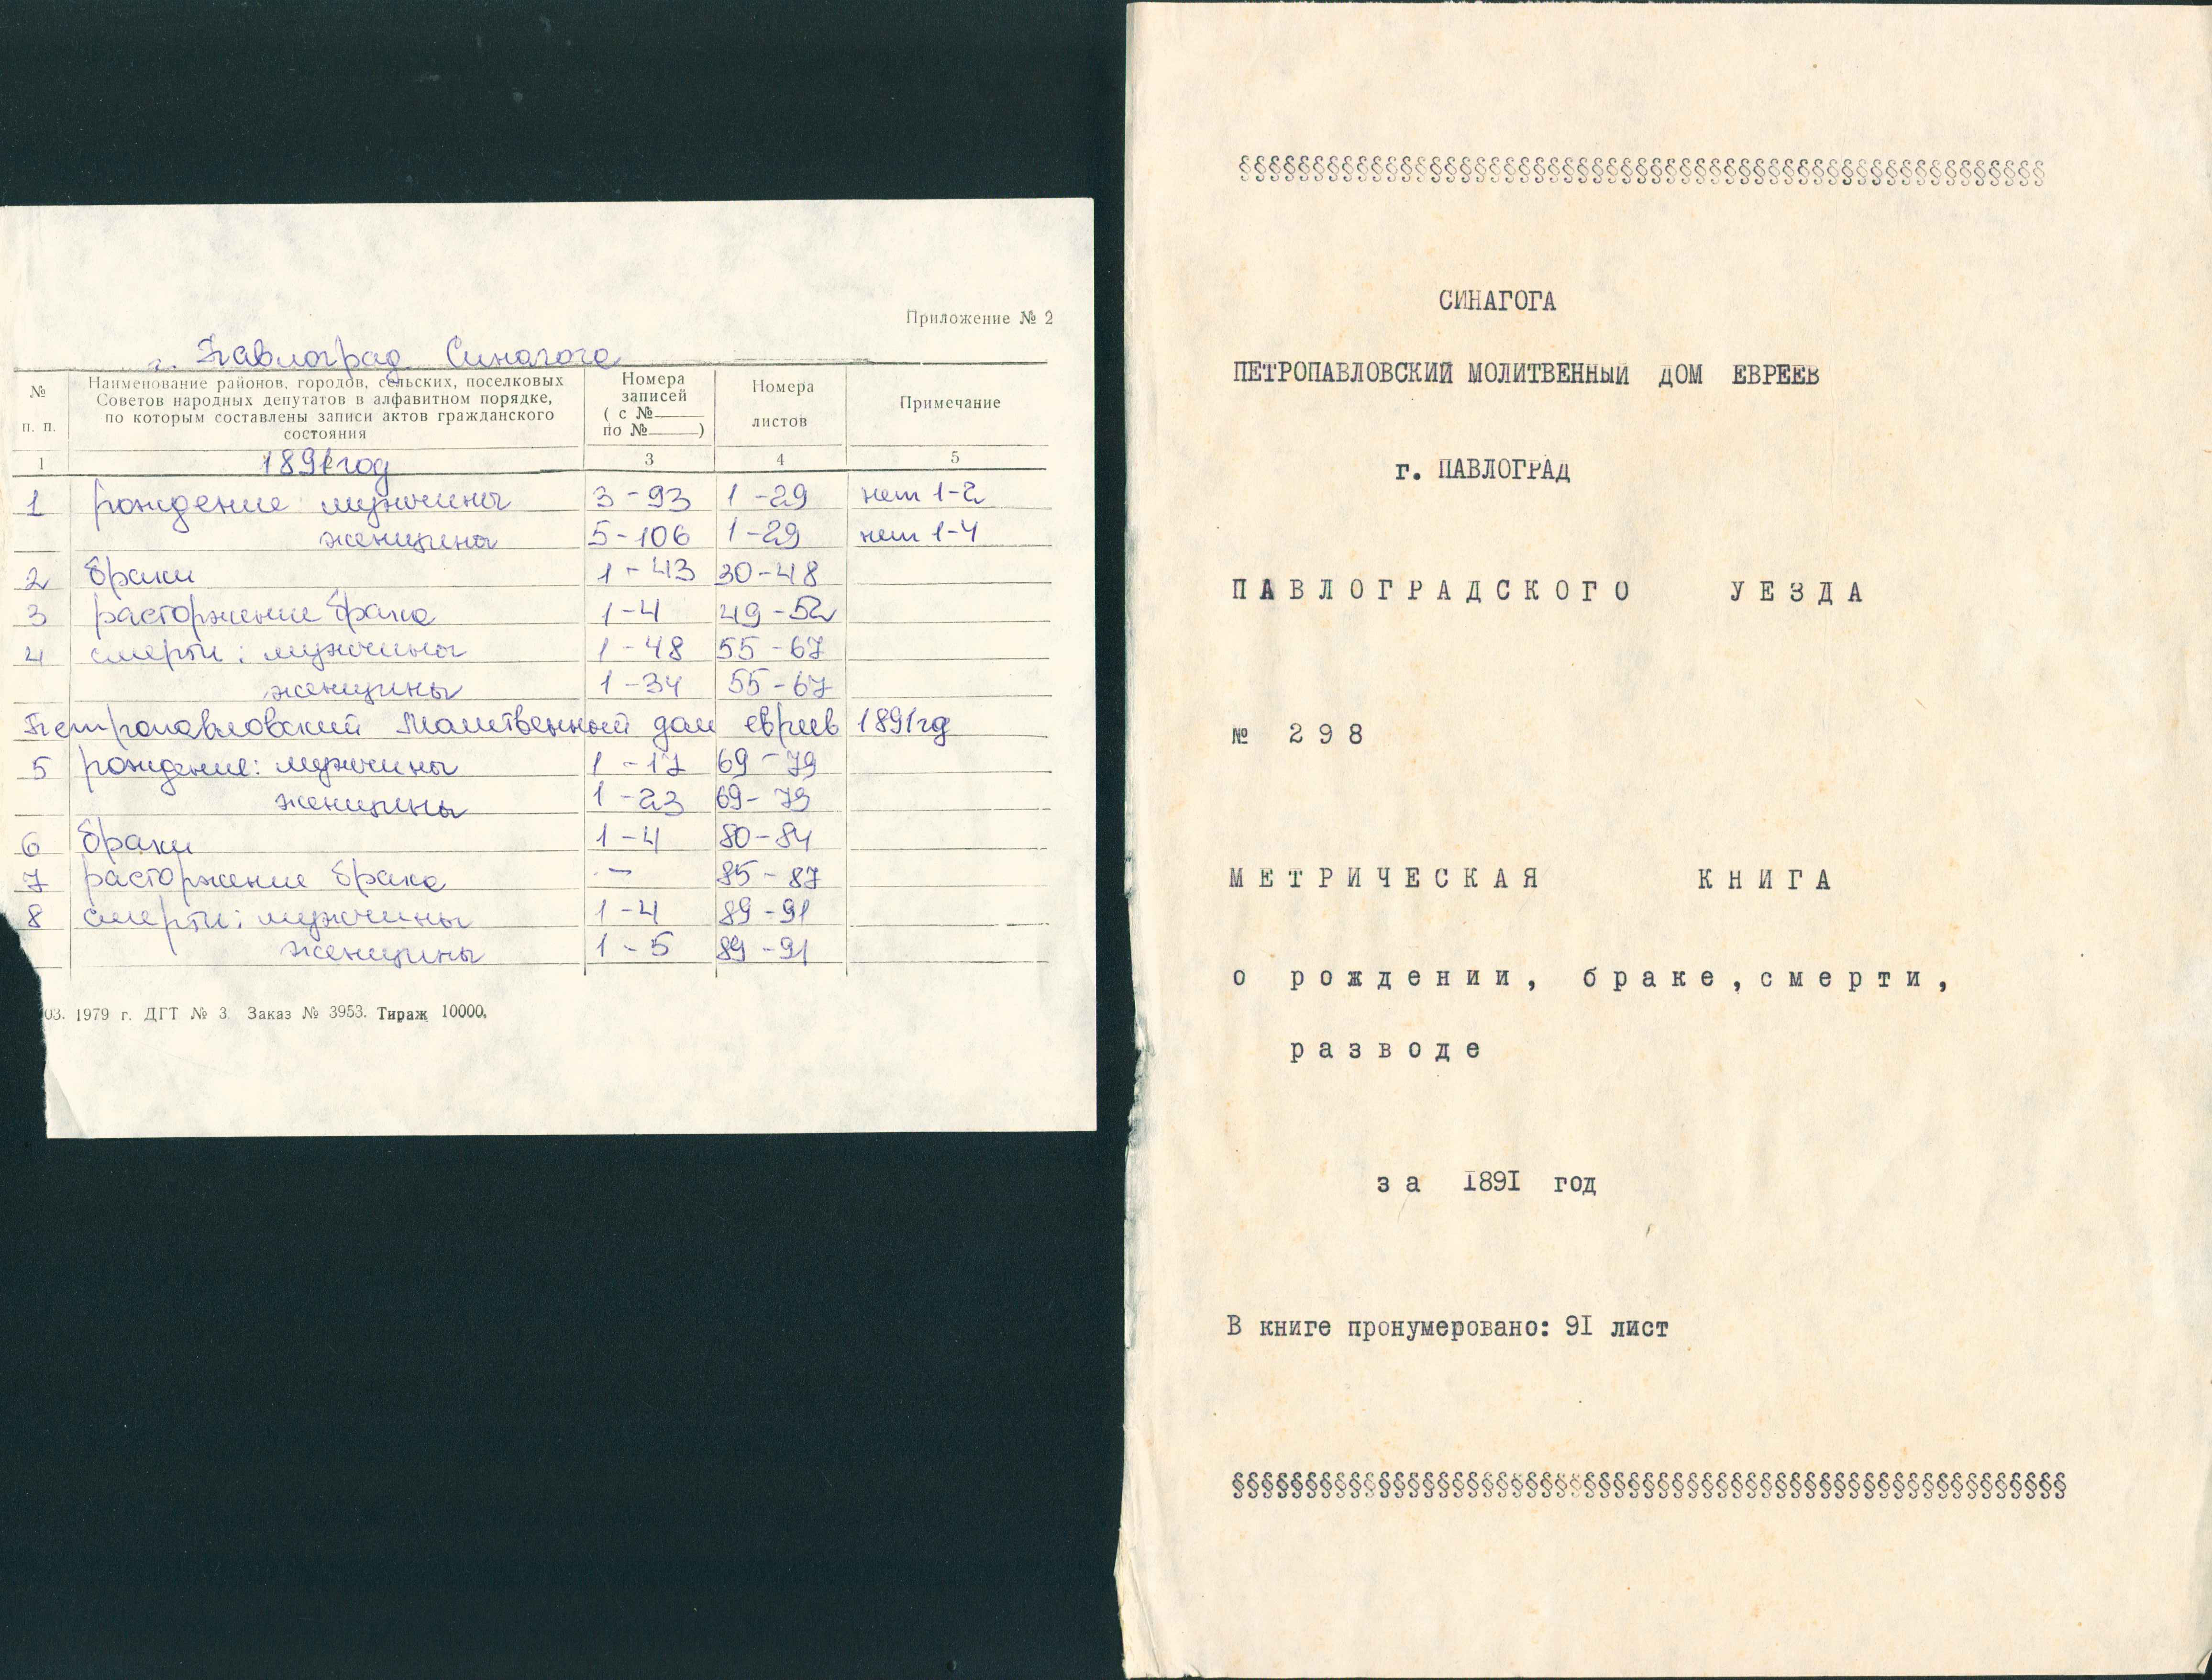 Приложение № 2
г. Павлоград Синагога
№ п. п. Наименование районов, городов, сельских, поселковых Советов народных депутатов в алфавитном порядке, по которым составлены записи актов гражданского состояния Номера записей ( с №____ по №____) Номера листов Примечание
1 1891 год 3 4 5
1 рождение мужчины 3-93 1-29 нет 1-2
женщины 5-106 1-29 нет 1-4
2 браки 1-43 30-48
3 расторжение брака 1-4 49-52
4 смерти: мужчины 1-48 55-67
женщины 1-34 55-67
Петропавловский Молитвенный дом евреев 1891 год
5 рождение: мужчины 1-17 69-79
женщины 1-23 69-79
6 браки 1-4 80-84
7 расторжение брака - 85-87
8 смерти: мужчины 1-4 89-91
женщины 1-5 89-91
03. 1979 г. ДГТ № 3. Заказ № 3953. Тираж 10000.
§§§§§§§§§§§§§§§§§§§§§§§§§§§§§§§§§§§§§§§§§§§§§§§§§§§§§§§
СИНАГОГА
ПЕТРОПАВЛОВСКИЙ МОЛИТВЕННЫЙ ДОМ ЕВРЕЕВ
г. ПАВЛОГРАД
ПАВЛОГРАДСКОГО УЕЗДА
№ 298
МЕТРИЧЕСКАЯ КНИГА
о рождении, браке, смерти,
разводе
за 1891 год
В книге пронумеровано: 91 лист
§§§§§§§§§§§§§§§§§§§§§§§§§§§§§§§§§§§§§§§§§§§§§§§§§§§§§§§§§